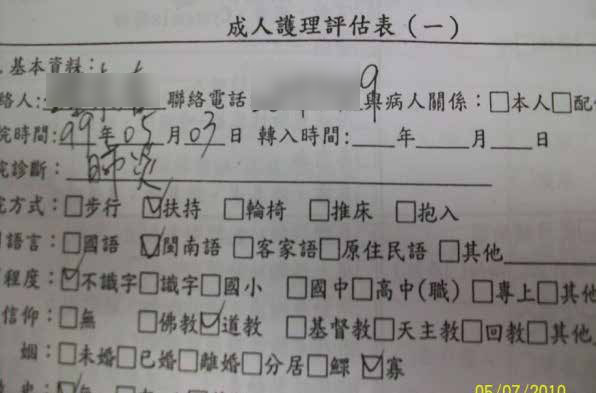 成人護理評估表(一)
基本資料:
絡人: 聯絡電話 9 與病人關係:□本人□配
院時間:99年05月03日 轉入時間:___年___月___日
院診斷:肺炎
院方式:□步行 ☑扶持 □輪椅 □推床 □抱入
語言:□國語 ☑閩南語 □客家語□原住民語 □其他
程度:☑不識字□識字□國小 □國中□高中(職) □專上□其他
信仰:□無 □佛教☑道教 □基督教□天主教□回教□其他
姻:□未婚□已婚□離婚□分居□鰥 ☑寡
05/07/2010